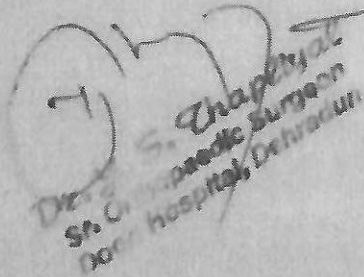 Dr. S. Thapliyal
Sr. Orthopaedic Surgeon
Doon Hospital, Dehradun